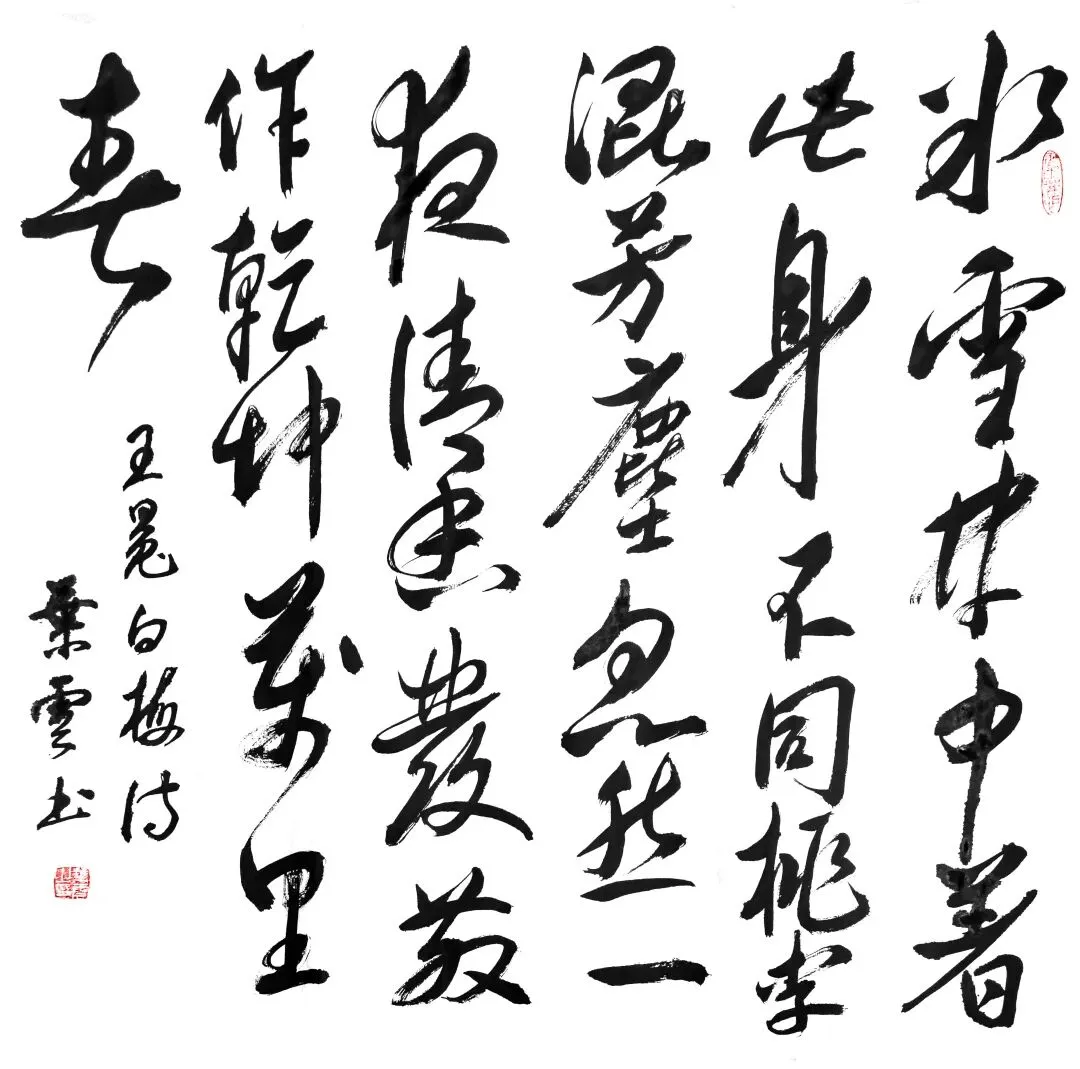 冰雪林中著
此身不同桃李
混芳塵忽然一
夜清香發散
作乾坤萬里
春
王冕白梅诗
葉雲书